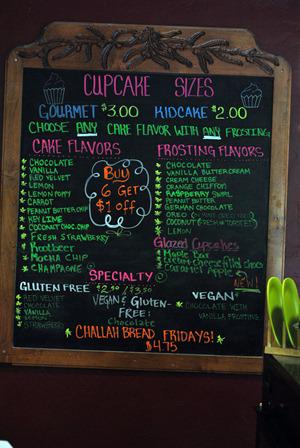 CUPCAKE SIZES
GOURMET $3.00 KIDCAKE $2.00
CHOOSE ANY CAKE FLAVOR WITH ANY FROSTING
CAKE FLAVORS
CHOCOLATE
VANILLA
RED VELVET
LEMON
LEMON POPPY
CARROT
PEANUT BUTTER CHIP
KEY LIME
COCONUT CHOC. CHIP
FRESH STRAWBERRY
Rootbeer
MOCHA CHIP
CHAMPAGNE
BUY
6 GET
$1 off
FROSTING FLAVORS
CHOCOLATE
VANILLA BUTTERCREAM
CREAM CHEESE
ORANGE CHIFFON
RASPBERRY SWIRL
PEANUT BUTTER
GERMAN CHOCOLATE
OREO
COCONUT (FRESH OR TOASTED)
LEMON
Glazed Cupcakes
Maple Bar
Cream cheese filled choco
Caramel Apple
NEW!
SPECIALTY
$2.50 / $3.50
GLUTEN FREE
RED VELVET
CHOCOLATE
VANILLA
LEMON
STRAWBERRY
VEGAN & GLUTEN-
FREE:
Chocolate
VEGAN
CHOCOLATE WITH
VANILLA FROSTING
CHALLAH BREAD FRIDAYS!
$4.75